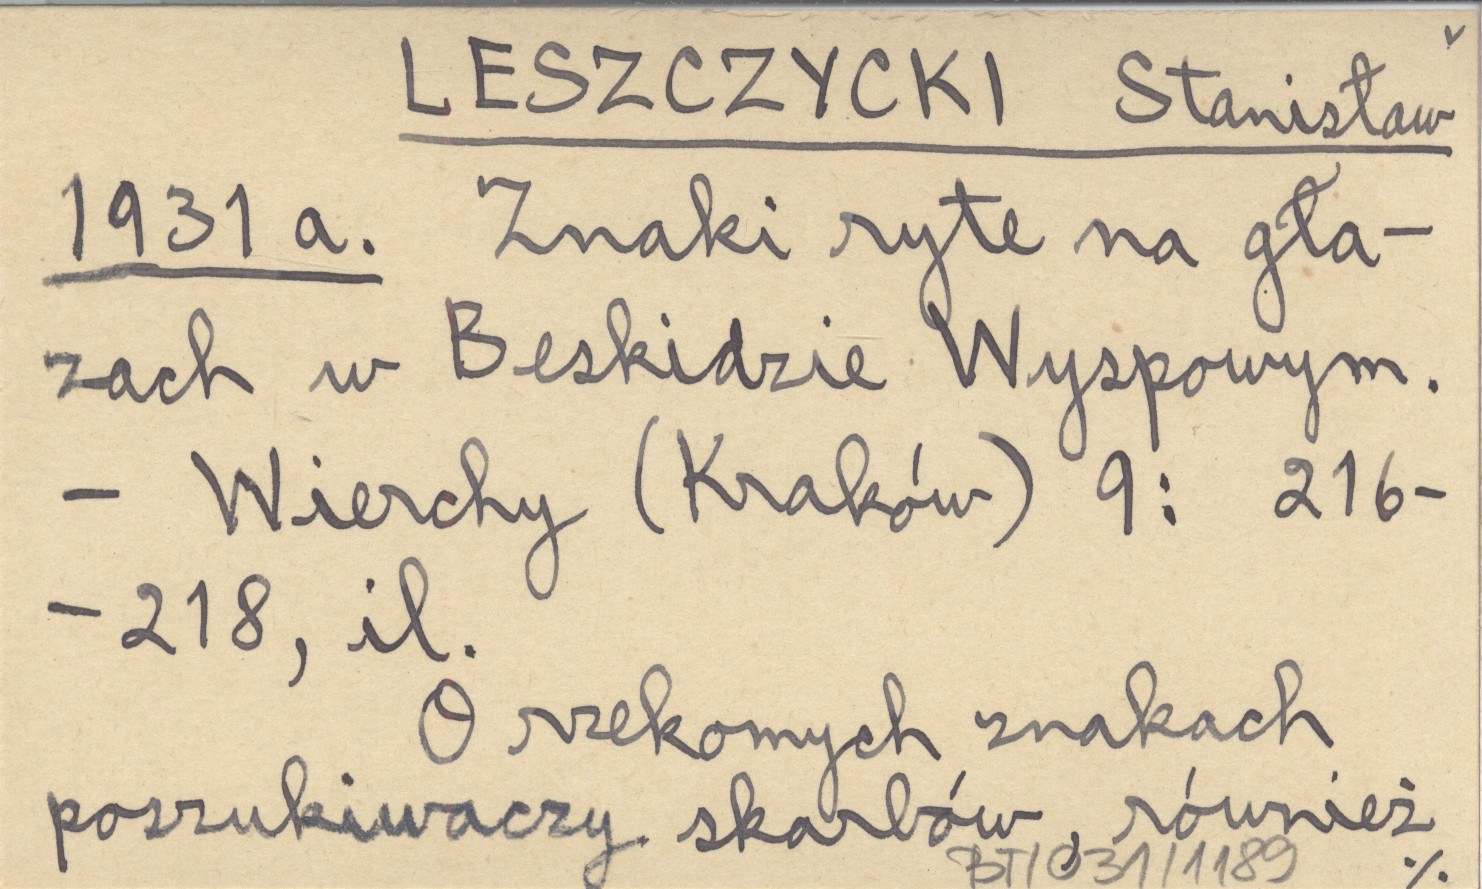 LESZCZYCKI Stanisław
1931 a. Znaki ryte na gła-
zach w Beskidzie Wyspowym.
- Wierchy (Kraków) 9: 216-
-218, il.
O rzekomych znakach
poszukiwaczy skarbów, również
BT/031/1189 ·/.